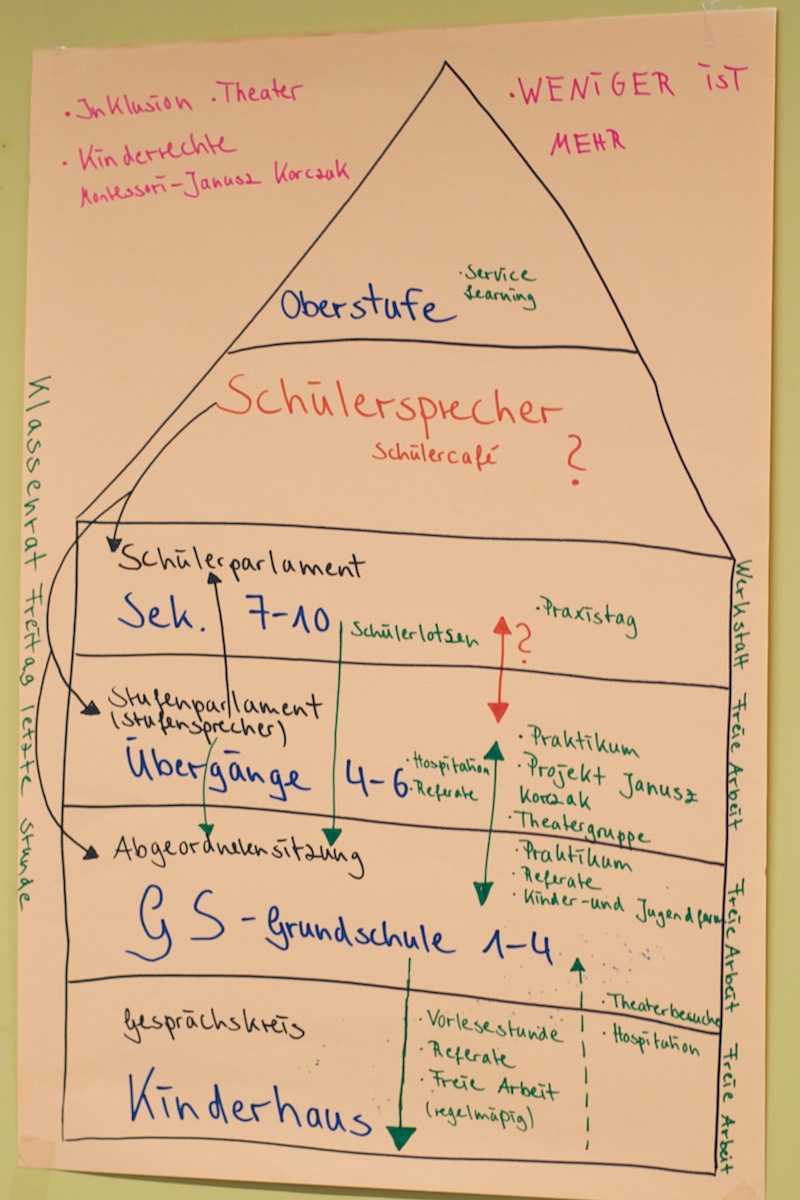 · Inklusion · Theater
· Kinderrechte
Montessori-Janusz Korczak
· WENiGER iST
MEHR
Oberstufe
· Service
Learning
Schülersprecher
Schülercafé ?
Schülerparlament
Sek. 7-10
Schülerlotsen
?
· Praxistag
Stufenparlament
(Stufensprecher)
Übergänge 4-6
· Hospitation
· Referate
· Praktikum
· Projekt Janusz
Korczak
· Theatergruppe
Abgeordnetensitzung
· Praktikum
· Referate
· Kinder-und Jugendfarm
GS-Grundschule 1-4
Gesprächskreis
Kinderhaus
· Vorlesestunde
· Referate
· Freie Arbeit
(regelmäßig)
· Theaterbesuche
· Hospitation
Klassenrat Freitag letzte Stunde
Werkstatt Freie Arbeit Freie Arbeit Freie Arbeit